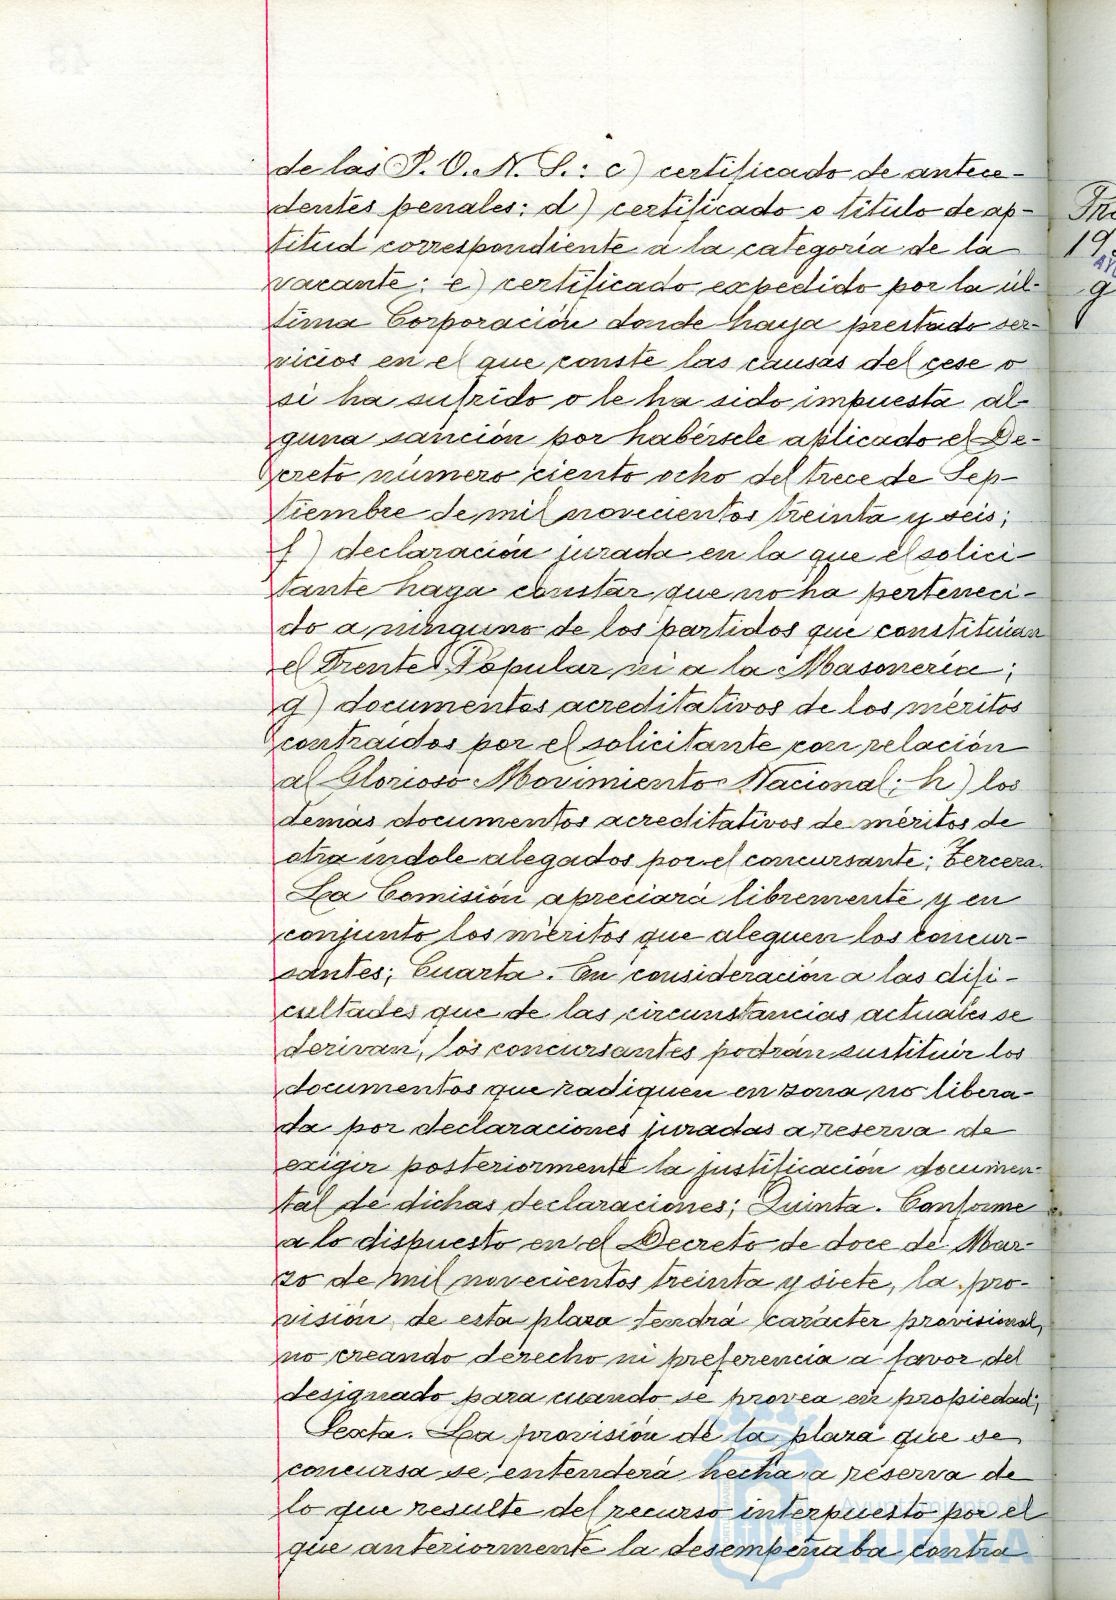 de las P. O. N. S.: c) certificado de antece-
dentes penales; d) certificado o título de ap-
titud correspondiente a la categoría de la
vacante; e) certificado expedido por la úl-
tima Corporación donde haya prestado ser-
vicios en el que conste las causas del cese o
si ha sufrido o le ha sido impuesta al-
guna sanción por habérsele aplicado el De-
creto número ciento ocho del trece de Sep-
tiembre de mil novecientos treinta y seis;
f) declaración jurada en la que el solici-
tante haga constar que no ha perteneci-
do a ninguno de los partidos que constituían
el Frente Popular ni a la Masonería;
g) documentos acreditativos de los méritos
contraídos por el solicitante con relación
al Glorioso Movimiento Nacional; h) los
demás documentos acreditativos de méritos de
otra índole alegados por el concursante; Tercera.
La Comisión apreciará libremente y en
conjunto los méritos que aleguen los concur-
santes; Cuarta. En consideración a las difi-
cultades que de las circunstancias actuales se
derivan, los concursantes podrán sustituir los
documentos que radiquen en zona no libera-
da por declaraciones juradas a reserva de
exigir posteriormente la justificación documen-
tal de dichas declaraciones; Quinta. Conforme
a lo dispuesto en el Decreto de doce de Mar-
zo de mil novecientos treinta y siete, la pro-
visión de esta plaza tendrá carácter provisional,
no creando derecho ni preferencia a favor del
designado para cuando se provea en propiedad;
Sexta. La provisión de la plaza que se
concursa se entenderá hecha a reserva de
lo que resulte del recurso interpuesto por el
que anteriormente la desempeñaba contra
Ayuntamiento de
HUELVA